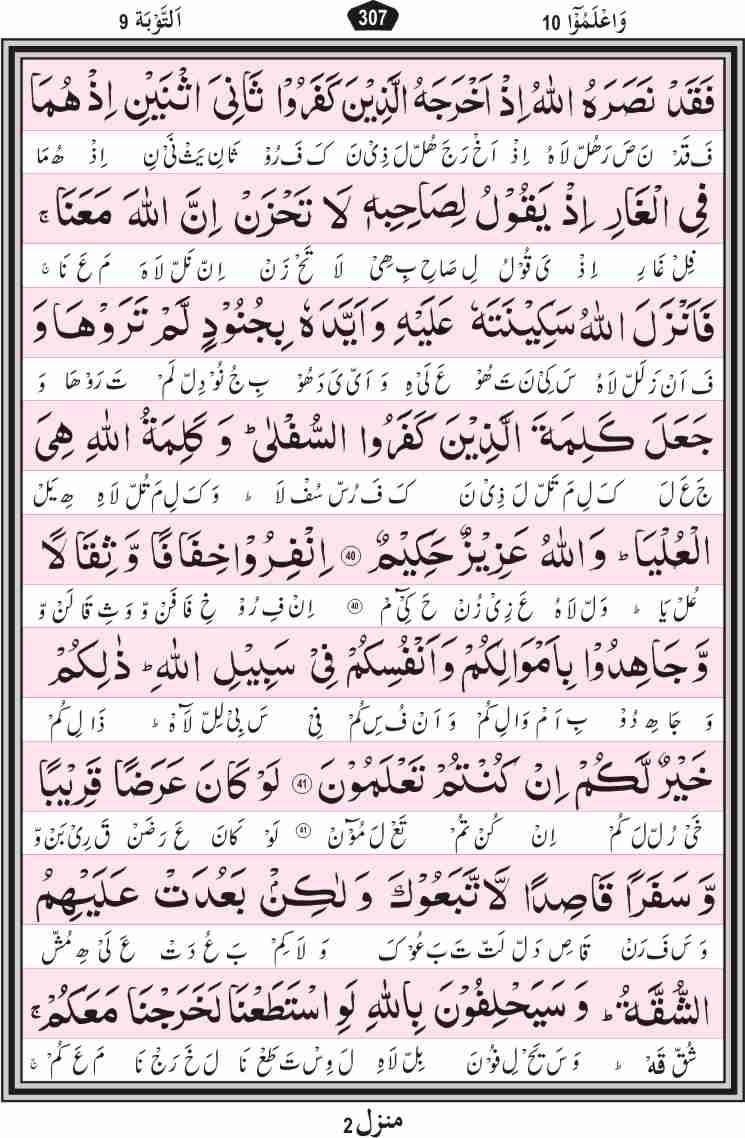 اَلتَّوْبَة 9 307 وَاعْلَمُوْٓا 10
فَقَدْ نَصَرَهُ اللّٰهُ اِذْ اَخْرَجَهُ الَّذِيْنَ كَفَرُوْا ثَانِيَ اثْنَيْنِ اِذْ هُمَا
فَ قَدْ نَ صَ رَ هُلْ لَا هُ اِذْ اَخْ رَ جَ هُلّ لَ ذِىْ نَ كَ فَ رُوْ ثَا نِ يَثْ نَىْ نِ اِذْ هُ مَا
فِي الْغَارِ اِذْ يَقُوْلُ لِصَاحِبِهٖ لَا تَحْزَنْ اِنَّ اللّٰهَ مَعَنَا ۚ
فِلْ غَا رِ اِذْ يَ قُوْ لُ لِ صَا حِ بِ هِىْ لَا تَحْ زَنْ اِنّ نَلّ لَا هَ مَ عَ نَا ۚ
فَاَنْزَلَ اللّٰهُ سَكِيْنَتَهٗ عَلَيْهِ وَاَيَّدَهٗ بِجُنُوْدٍ لَّمْ تَرَوْهَا وَ
فَ اَنْ زَ لَلّ لَا هُ سَ كِىْ نَ تَ هُوْ عَ لَىْ هِ وَ اَىّ يَ دَ هُوْ بِ جُ نُوْ دِلّ لَمْ تَ رَوْ هَا وَ
جَعَلَ كَلِمَةَ الَّذِيْنَ كَفَرُوا السُّفْلٰى ؕ وَ كَلِمَةُ اللّٰهِ هِيَ
جَ عَ لَ كَ لِ مَ تَلّ لَ ذِىْ نَ كَ فَ رُسّ سُفْ لَا ؕ وَ كَ لِ مَ تُلّ لَا هِ هِ يَلْ
الْعُلْيَا ؕ وَاللّٰهُ عَزِيْزٌ حَكِيْمٌ 40 اِنْفِرُوْا خِفَافًا وَّ ثِقَالًا
عُلْ يَا ؕ وَلّ لَا هُ عَ زِىْ زُنْ حَ كِىْٓ مْ 40 اِنْ فِ رُوْ خِ فَا فَنْ وّ وَ ثِ قَا لَنْ وّ
وَّ جَاهِدُوْا بِاَمْوَالِكُمْ وَاَنْفُسِكُمْ فِيْ سَبِيْلِ اللّٰهِ ؕ ذٰلِكُمْ
وَ جَا هِ دُوْ بِ اَمْ وَا لِ كُمْ وَ اَنْ فُ سِ كُمْ فِىْ سَ بِىْ لِلّ لَآ هْ ؕ ذَا لِ كُمْ
خَيْرٌ لَّكُمْ اِنْ كُنْتُمْ تَعْلَمُوْنَ 41 لَوْ كَانَ عَرَضًا قَرِيْبًا
خَىْ رُلّ لَ كُمْ اِنْ كُنْ تُمْ تَعْ لَ مُوْٓنْ 41 لَوْ كَانَ عَ رَضَنْ قَ رِىْ بَنْ وّ
وَّ سَفَرًا قَاصِدًا لَّاتَّبَعُوْكَ وَ لٰكِنْۢ بَعُدَتْ عَلَيْهِمُ
وَ سَ فَ رَنْ قَا صِ دَلّ لَتّ تَ بَ عُوْ كَ وَ لَا كِمْ بَ عُ دَتْ عَ لَىْ هِ مُشّ
الشُّقَّةُ ؕ وَ سَيَحْلِفُوْنَ بِاللّٰهِ لَوِ اسْتَطَعْنَا لَخَرَجْنَا مَعَكُمْ ۚ
شُقّ قَهْ ؕ وَ سَ يَحْ لِ فُوْنَ بِلّ لَاهِ لَ وِسْ تَ طَعْ نَا لَ خَ رَجْ نَا مَ عَ كُمْ ۚ
منزل 2